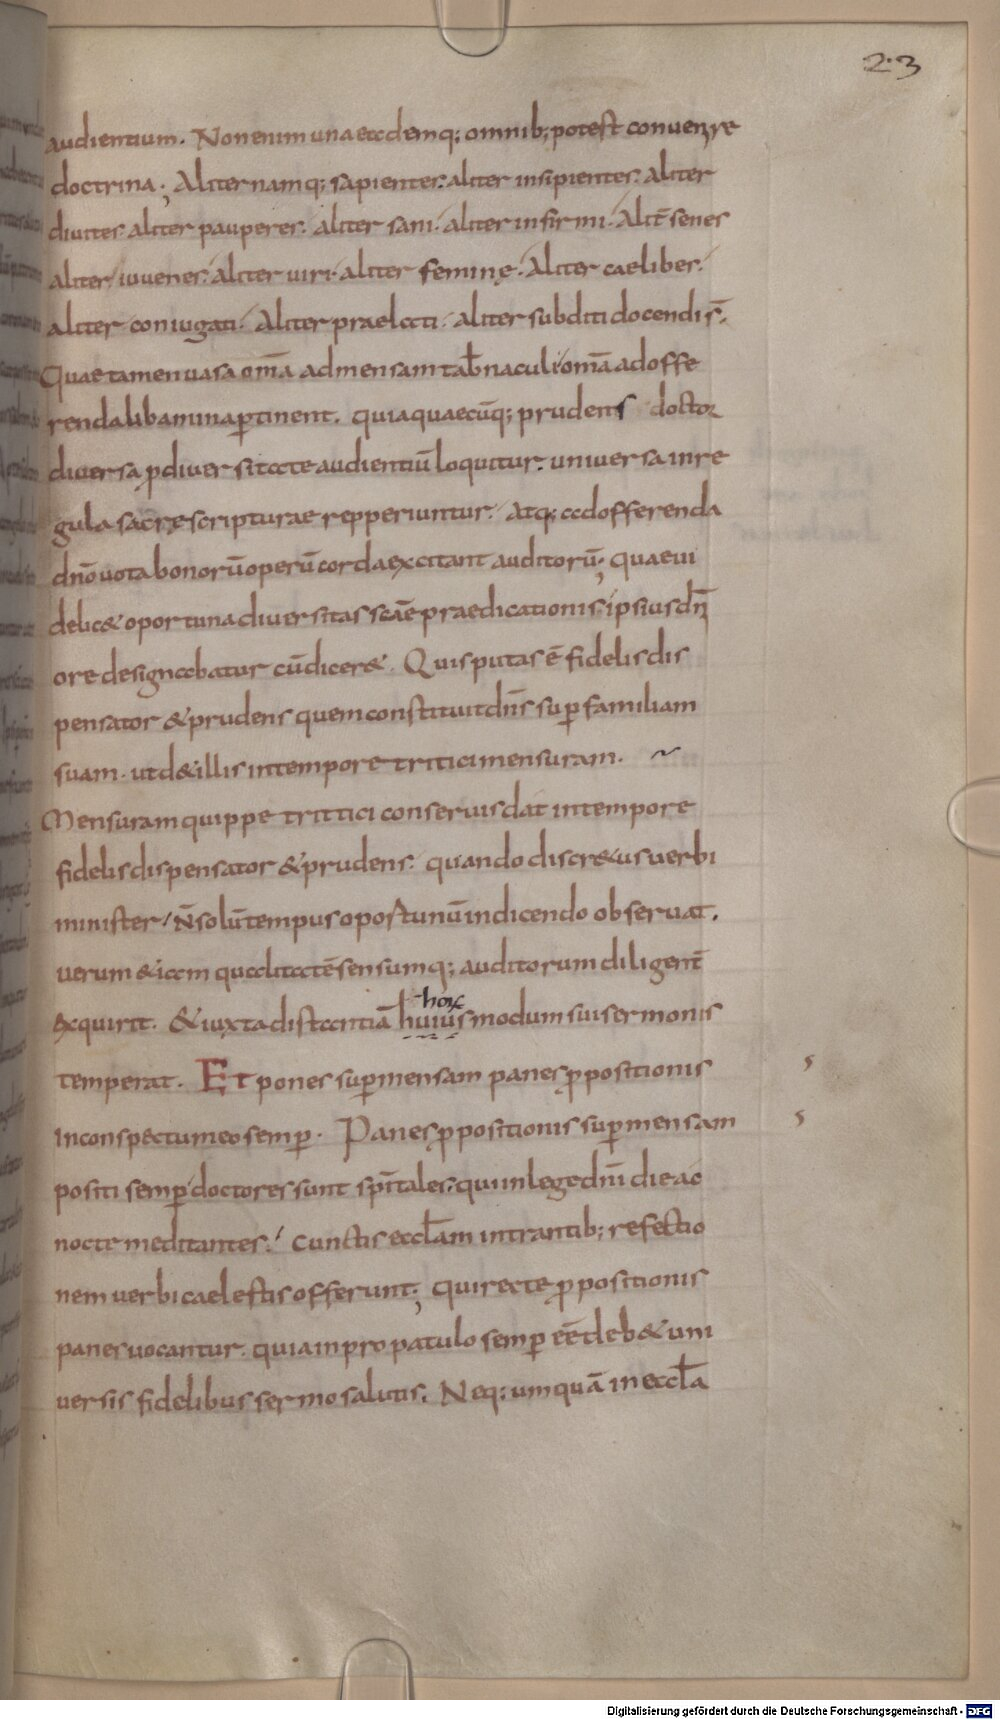 23
audientium. Non enim una eademq; omnib; potest convenire
doctrina; Aliter namq; sapientes. aliter insipientes. Aliter
divites. aliter pauperes. aliter sani. aliter infirmi. Alit̄ senes
aliter iuvenes. aliter viri. aliter feminę. Aliter caelibes.
aliter coniugati. Aliter praelati. aliter subditi docendi s̄.
Quae tamen vasa om̄a ad mensam tab̄naculi om̄a ad offe
renda libamina ꝑtinent. quia quaecūq; prudens doctor
diversa ꝑ diversitate audientiū loquitur. universa in re
gula sacrę scripturae repperiuntur. Atq; ad offerenda
dn̄o vota bonorū operū corda excitant auditorū; quae vi
delic& oportuna diversitas sc̄ae praedicationis ipsius dn̄i
ore designabatur cū dicer&. Quis putas ē fidelis dis
pensator & prudens quem constituit dn̄s suꝑ familiam
suam. ut d& illis in tempore tritici mensuram. ~
Mensuram quippe tritici conservis dat in tempore
fidelis dispensator & prudens. quando discr&us verbi
minister n̄ solū tempus oportunū in dicendo observat.
verum &iam qualitatē sensumq; auditorum diligent̄
exquirit. & iuxta distantiā huius modum sui sermonis
hoꝝ
temperat. Et pones suꝑ mensam panes ꝓpositionis
in conspectu meo semꝑ. Panes ꝓpositionis suꝑ mensam
positi semꝑ doctores sunt sp̄itales. qui in lege dn̄i die ac
nocte meditantes. cunctis eccl̄am intrantib; refectio
nem verbi caelestis offerunt; qui recte ꝓpositionis
panes vocantur. quia in propatulo semꝑ eē deb& uni
versis fidelibus sermo salutis. Neq; umquā in eccl̄a
Digitalisierung gefördert durch die Deutsche Forschungsgemeinschaft - DFG